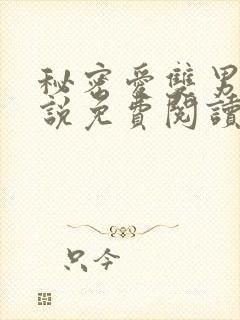 秘密愛雙男
說免費閱讀
只今